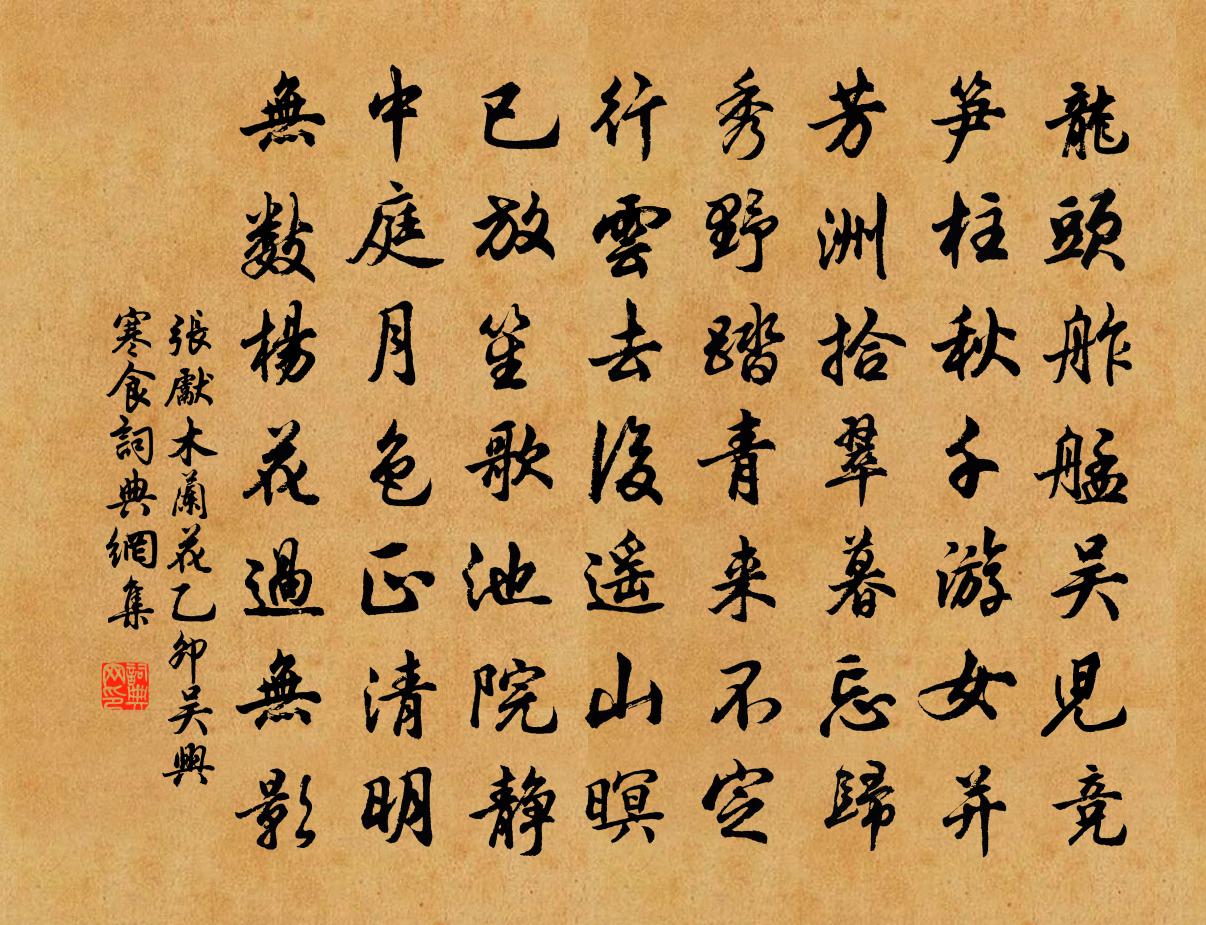 龍頭舴艋吳兒競
笋柱秋千游女并
芳洲拾翠暮忘歸
秀野踏青来不定
行雲去後遥山暝
已放笙歌池院静
中庭月色正清明
無數楊花過無影
張獻木蘭花乙卯吳興
寒食詞典網集
詞典
网印